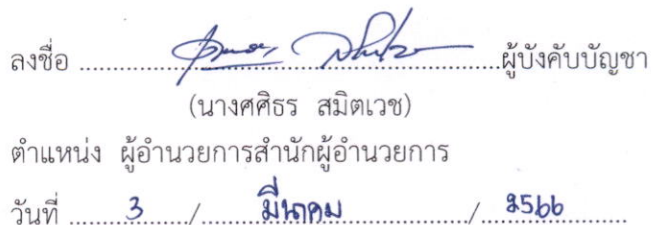 ลงชื่อ ........................................................ผู้บังคับบัญชา
(นางศศิธร สมิตเวช)
ตำแหน่ง ผู้อำนวยการสำนักผู้อำนวยการ
วันที่ ........3......./........มีนาคม................/...2566............